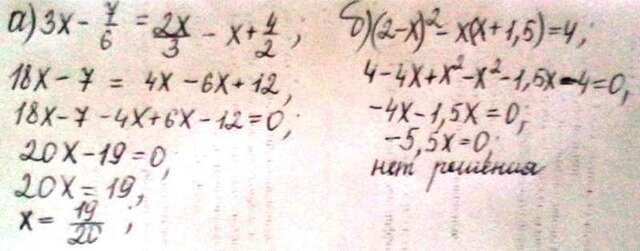 а) 3x - 7/6 = 2x/3 - x + 4/2;
18x - 7 = 4x - 6x + 12;
18x - 7 - 4x + 6x - 12 = 0;
20x - 19 = 0;
20x = 19;
x = 19/20;
б) (2-x)² - x(x+1,5) = 4;
4 - 4x + x² - x² - 1,5x - 4 = 0;
-4x - 1,5x = 0;
-5,5x = 0;
нет решения